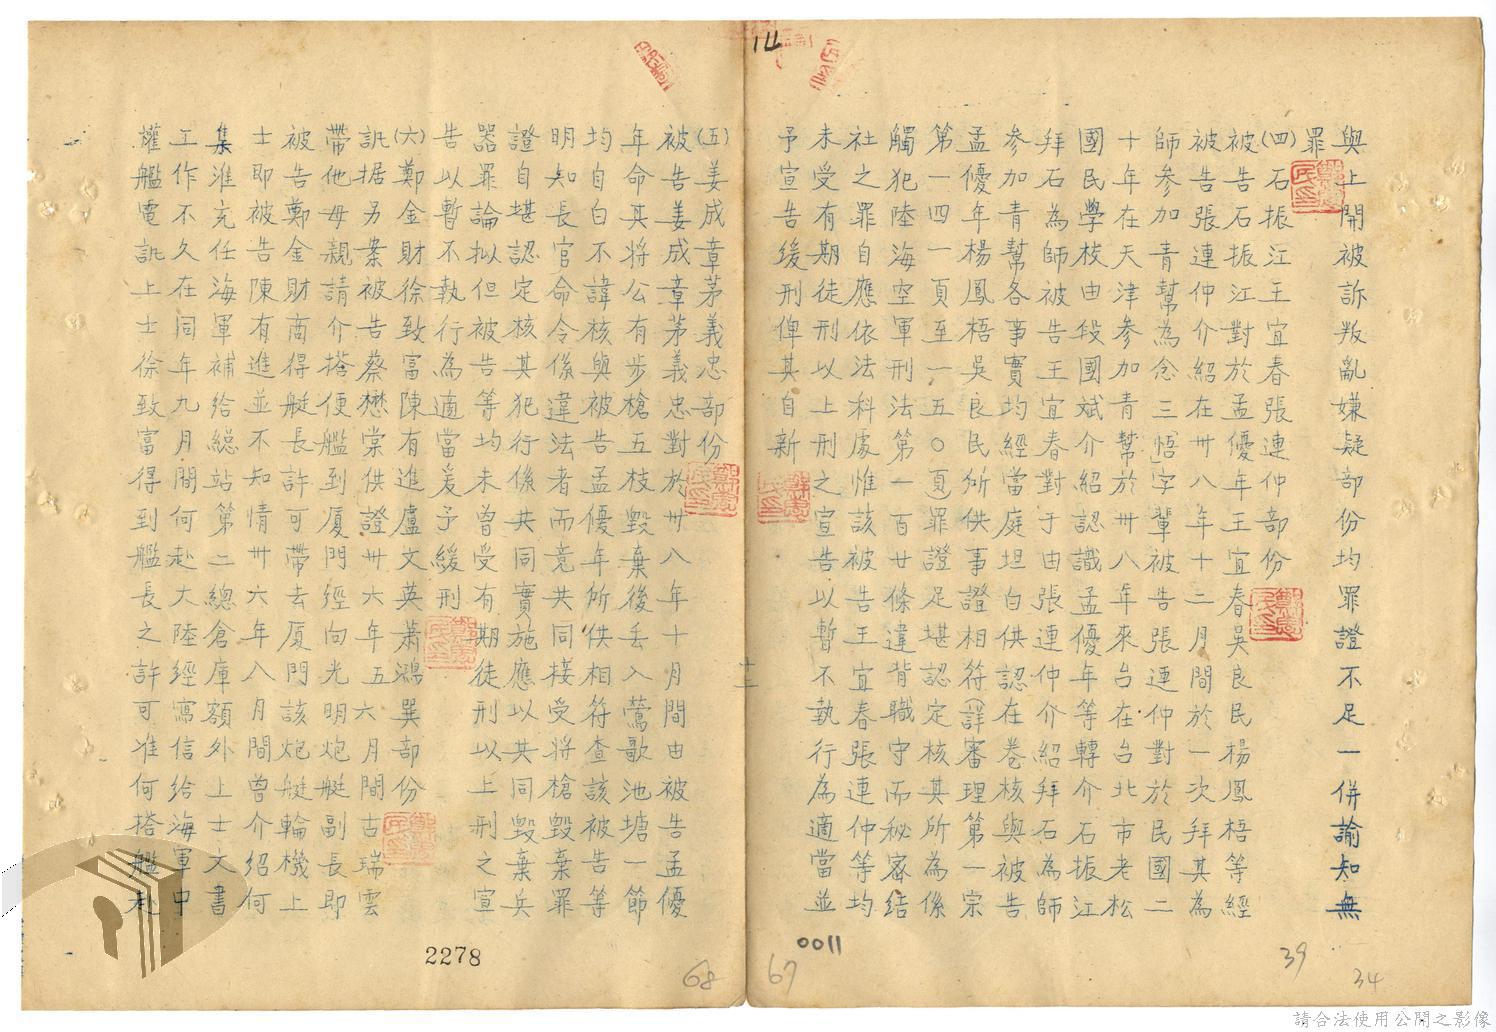 與上開被訴叛亂嫌疑部份均罪證不足一併諭知無
罪
(四)石振江王宜春張連仲部份
被告石振江對於孟優年王宜春吳良民楊鳳梧等經
被告張連仲介紹在卅八年十二月間於一次拜其為
師參加青幫為念三「悟」字輩被告張連仲對於民國二
十年在天津參加青幫於卅八年來台在台北市老松
國民學校由段國斌介紹認識孟優年等轉介石振江
拜石為師被告王宜春對于由張連仲介紹拜石為師
參加青幫各事實均經當庭坦白供認在卷核與被告
孟優年楊鳳梧吳良民所供事證相符(詳審理第一宗
第一四一頁至一五〇頁)罪證足堪認定核其所為係
觸犯陸海空軍刑法第一百廿條違背職守而秘密結
社之罪自應依法科處惟該被告王宜春張連仲等均
未受有期徒刑以上刑之宣告以暫不執行為適當並
予宣告緩刑俾其自新
(五)姜成章茅義忠部份
被告姜成章茅義忠對於卅八年十月間由被告孟優
年命其將公有步槍五枝毀棄後丟入鶯歌池塘一節
均自白不諱核與被告孟優年所供相符查該被告等
明知長官命令係違法者而竟共同接受將槍毀棄罪
證自堪認定核其犯行係共同實施應以共同毀棄兵
器罪論擬但被告等均未曾受有期徒刑以上刑之宣
告以暫不執行為適當爰予緩刑
(六)鄭金財徐致富陳有進盧文英蕭鴻巽部份
訊据另案被告蔡懋棠供證卅六年五六月間古瑞雲
帶他母親請介搭便艦到廈門經向光明炮艇副長即
被告鄭金財商得艇長許可帶去廈門該炮艇輪機上
士即被告陳有進並不知情卅六年八月間曾介紹何
集淮充任海軍補給總站第二總倉庫額外上士文書
工作不久在同年九月間何赴大陸經寫信給海軍中
權艦電訊上士徐致富得到艦長之許可准何搭艦赴
十二
2278
0011
68
67
39
34
請合法使用公開之影像